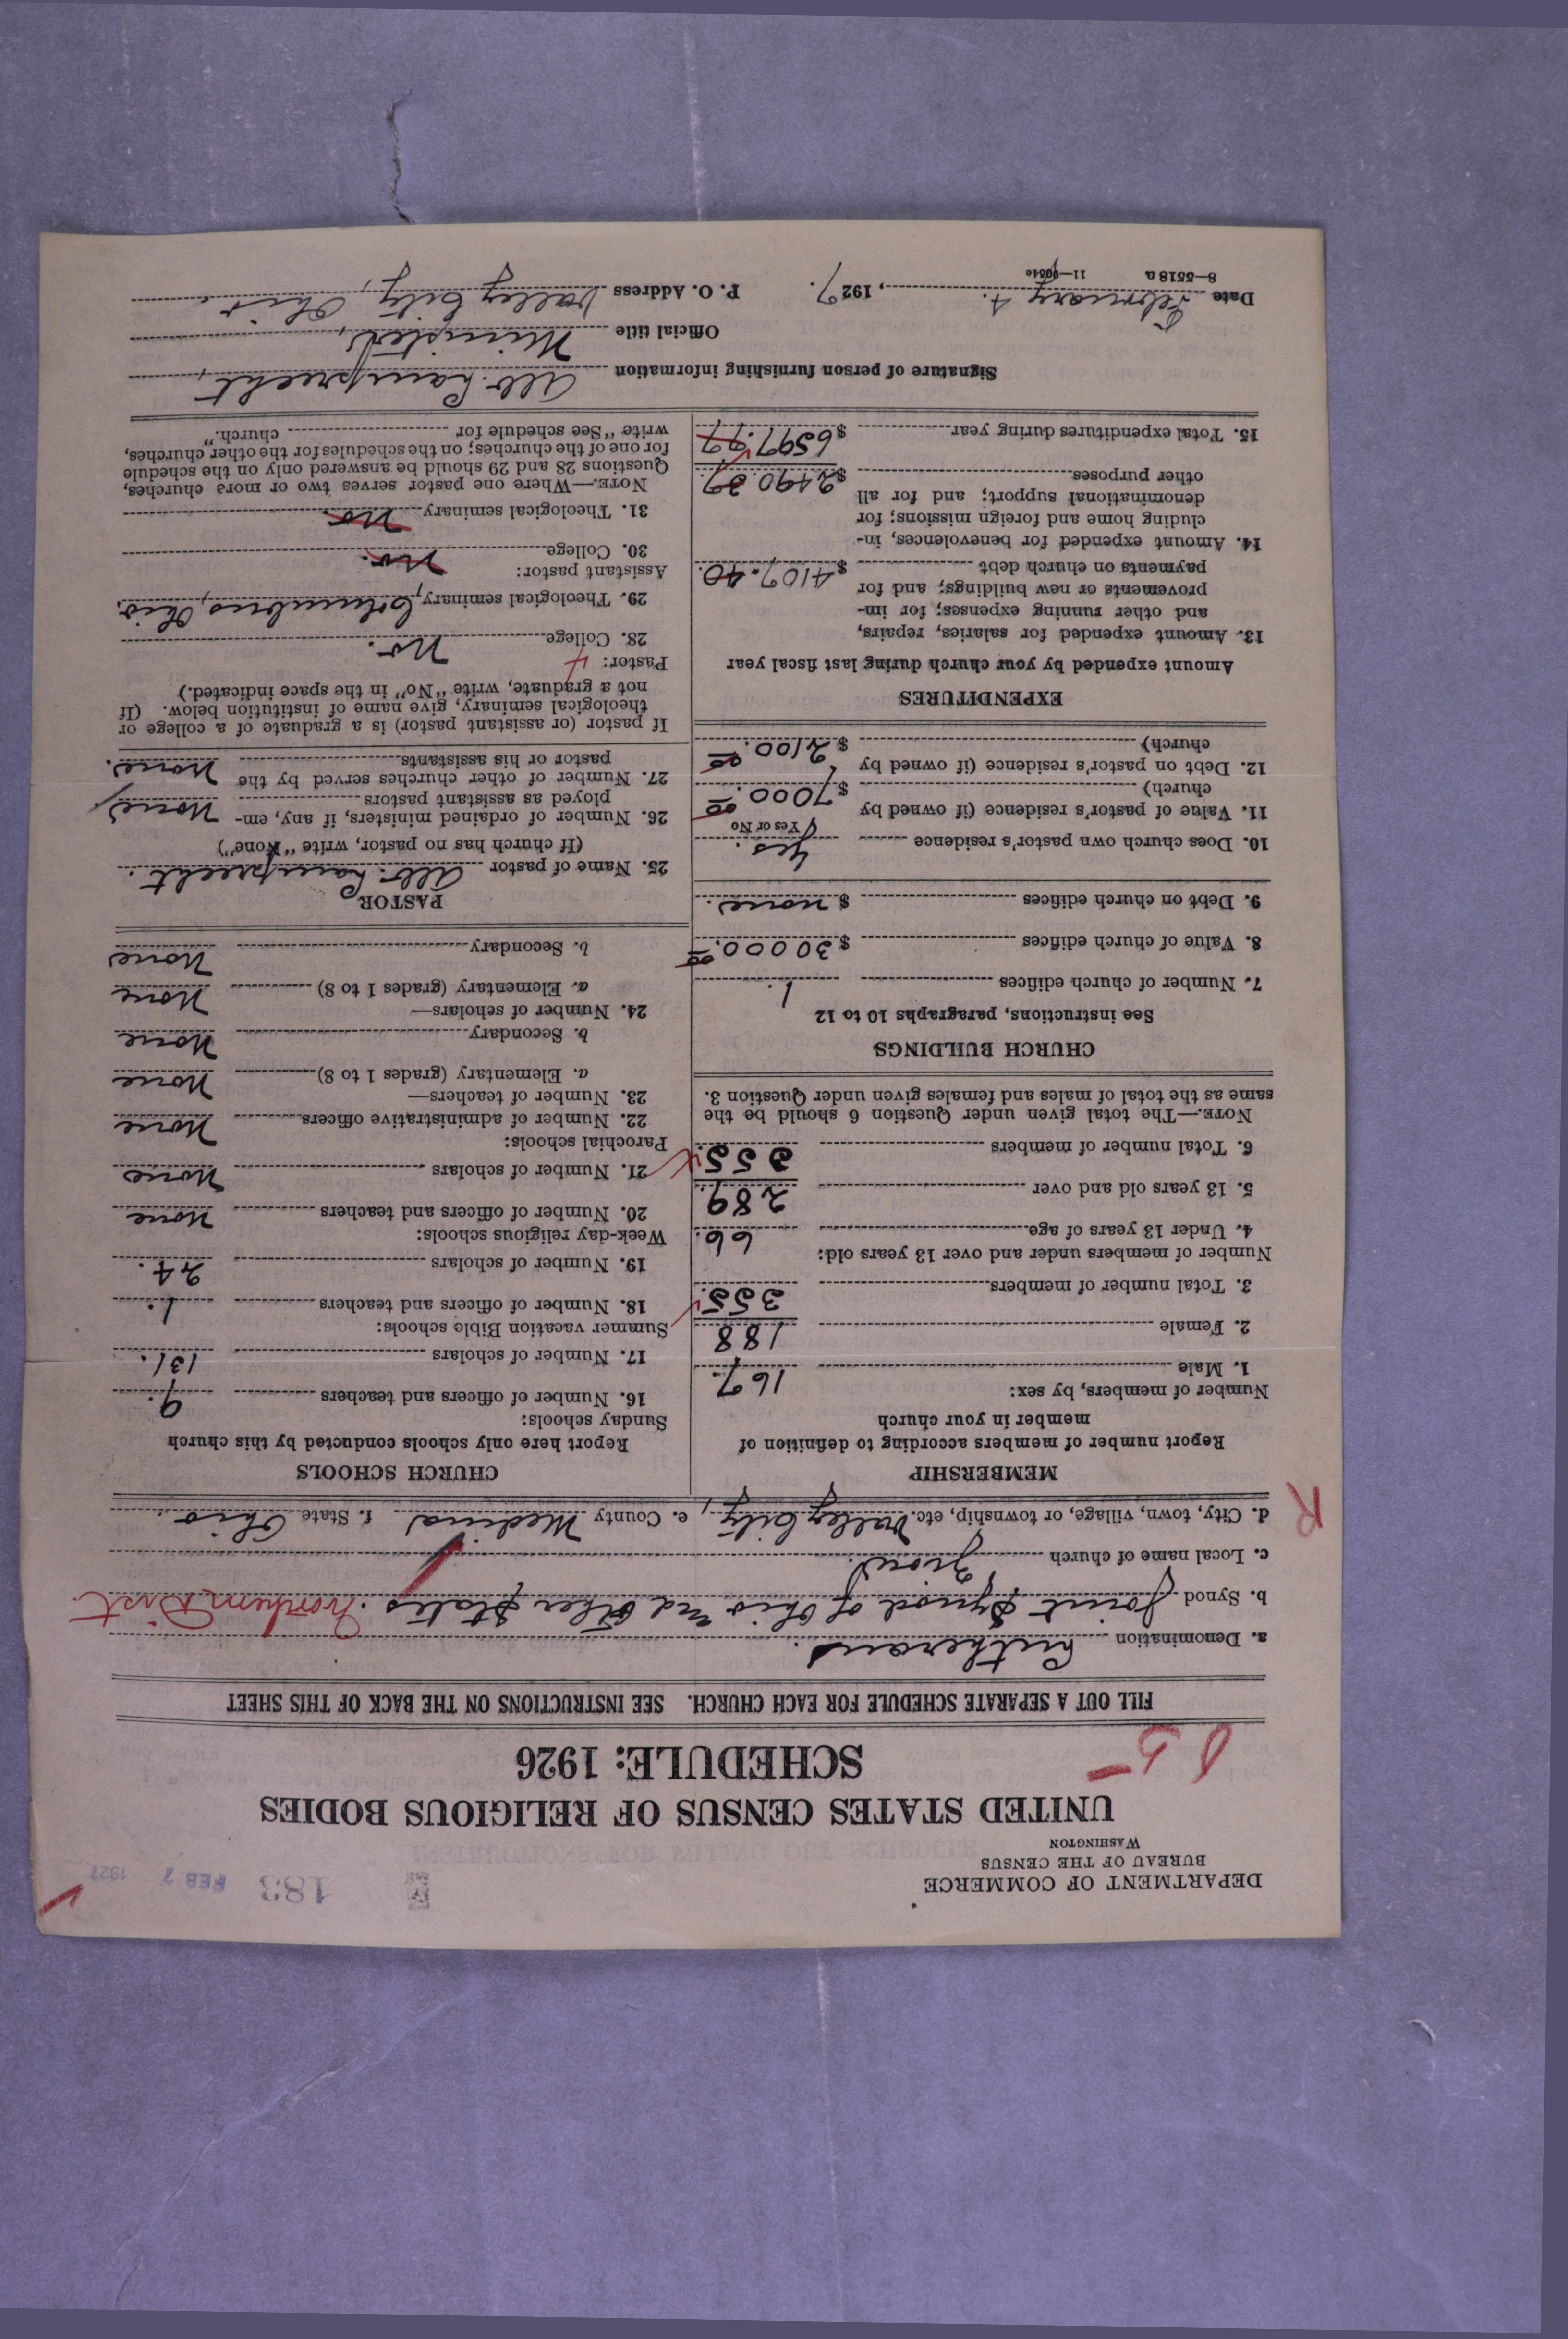 DEPARTMENT OF COMMERCE
BUREAU OF THE CENSUS
WASHINGTON
183
FEB 7 1927
UNITED STATES CENSUS OF RELIGIOUS BODIES
SCHEDULE: 1926
FILL OUT A SEPARATE SCHEDULE FOR EACH CHURCH. SEE INSTRUCTIONS ON THE BACK OF THIS SHEET
a. Denomination Lutheran.
b. Synod Joint Synod of Ohio and Other States. Northern Dist.
c. Local name of church Zion.
R
d. City, town, village, or township, etc. Valley City, e. County Medina f. State Ohio.
MEMBERSHIP
Report number of members according to definition of
member in your church
Number of members, by sex:
1. Male 167.
2. Female 188
3. Total number of members 355.
Number of members under and over 13 years old:
4. Under 13 years of age 66.
5. 13 years old and over 289
6. Total number of members 355.
NOTE.—The total given under Question 6 should be the
same as the total of males and females given under Question 3.
CHURCH BUILDINGS
See instructions, paragraphs 10 to 12
7. Number of church edifices 1.
8. Value of church edifices $30000.00
9. Debt on church edifices $ none.
10. Does church own pastor's residence Yes.
Yes or No
11. Value of pastor's residence (if owned by
church) $7000.00
12. Debt on pastor's residence (if owned by
church) $2100.00
EXPENDITURES
Amount expended by your church during last fiscal year
13. Amount expended for salaries, repairs,
and other running expenses; for im-
provements or new buildings; and for
payments on church debt $4107.40.
14. Amount expended for benevolences, in-
cluding home and foreign missions; for
denominational support; and for all
other purposes $2490.37.
15. Total expenditures during year $6597.77
CHURCH SCHOOLS
Report here only schools conducted by this church
Sunday schools:
16. Number of officers and teachers 9.
17. Number of scholars 131.
Summer vacation Bible schools:
18. Number of officers and teachers 1.
19. Number of scholars 24.
Week-day religious schools:
20. Number of officers and teachers None
21. Number of scholars None
Parochial schools:
22. Number of administrative officers None
23. Number of teachers—
a. Elementary (grades 1 to 8) None
b. Secondary None
24. Number of scholars—
a. Elementary (grades 1 to 8) None
b. Secondary None
PASTOR
25. Name of pastor Alb. Lamprecht.
(If church has no pastor, write "None")
26. Number of ordained ministers, if any, em-
ployed as assistant pastors None,
27. Number of other churches served by the
pastor or his assistants None.
If pastor (or assistant pastor) is a graduate of a college or
theological seminary, give name of institution below. (If
not a graduate, write "No" in the space indicated.)
Pastor:
28. College No.
29. Theological seminary Columbus, Ohio.
Assistant pastor:
30. College No.
31. Theological seminary No
NOTE.—Where one pastor serves two or more churches,
Questions 28 and 29 should be answered only on the schedule
for one of the churches; on the schedules for the other churches,
write "See schedule for church."
Signature of person furnishing information Alb. Lamprecht,
Official title Minister,
Date February 4., 1927. P. O. Address Valley City, Ohio.
8—5518a